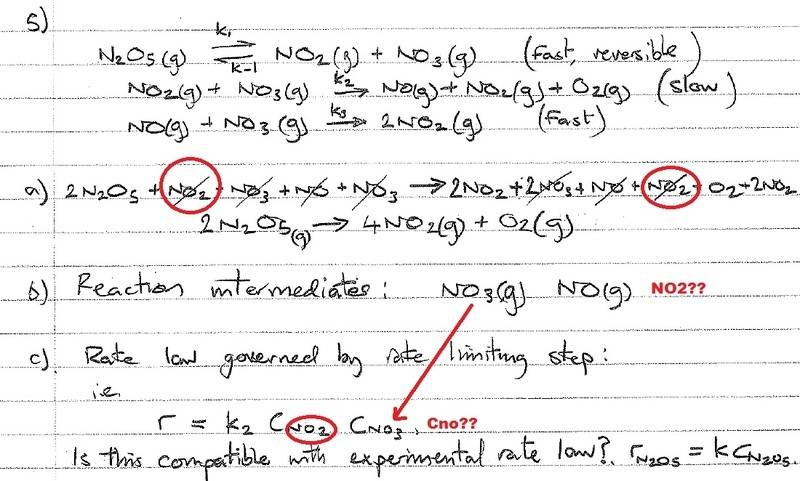 5)
N2O5(g) k1 ⇌ k-1 NO2(g) + NO3(g) (fast, reversible)
NO2(g) + NO3(g) k2 → NO(g) + NO2(g) + O2(g) (slow)
NO(g) + NO3(g) k3 → 2NO2(g) (fast)
a) 2N2O5 + NO2 + NO3 + NO + NO3 → 2NO2 + 2NO3 + NO + NO2 + O2 + 2NO2
2N2O5(g) → 4NO2(g) + O2(g)
b) Reaction intermediates: NO3(g) NO(g) NO2??
c) Rate law governed by rate limiting step:
i.e
r = k2 CNO2 CNO3. Cno??
Is this compatible with experimental rate law? rN2O5 = kCN2O5.